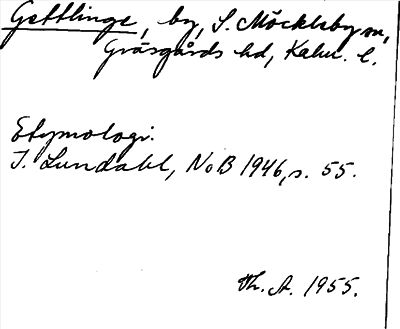 Gettlinge, by, S. Möckleby sn,
Gräsgårds hd, Kalm. l.
Etymologi:
I. Lundahl, NoB 1946, s. 55.
Th. A. 1955.